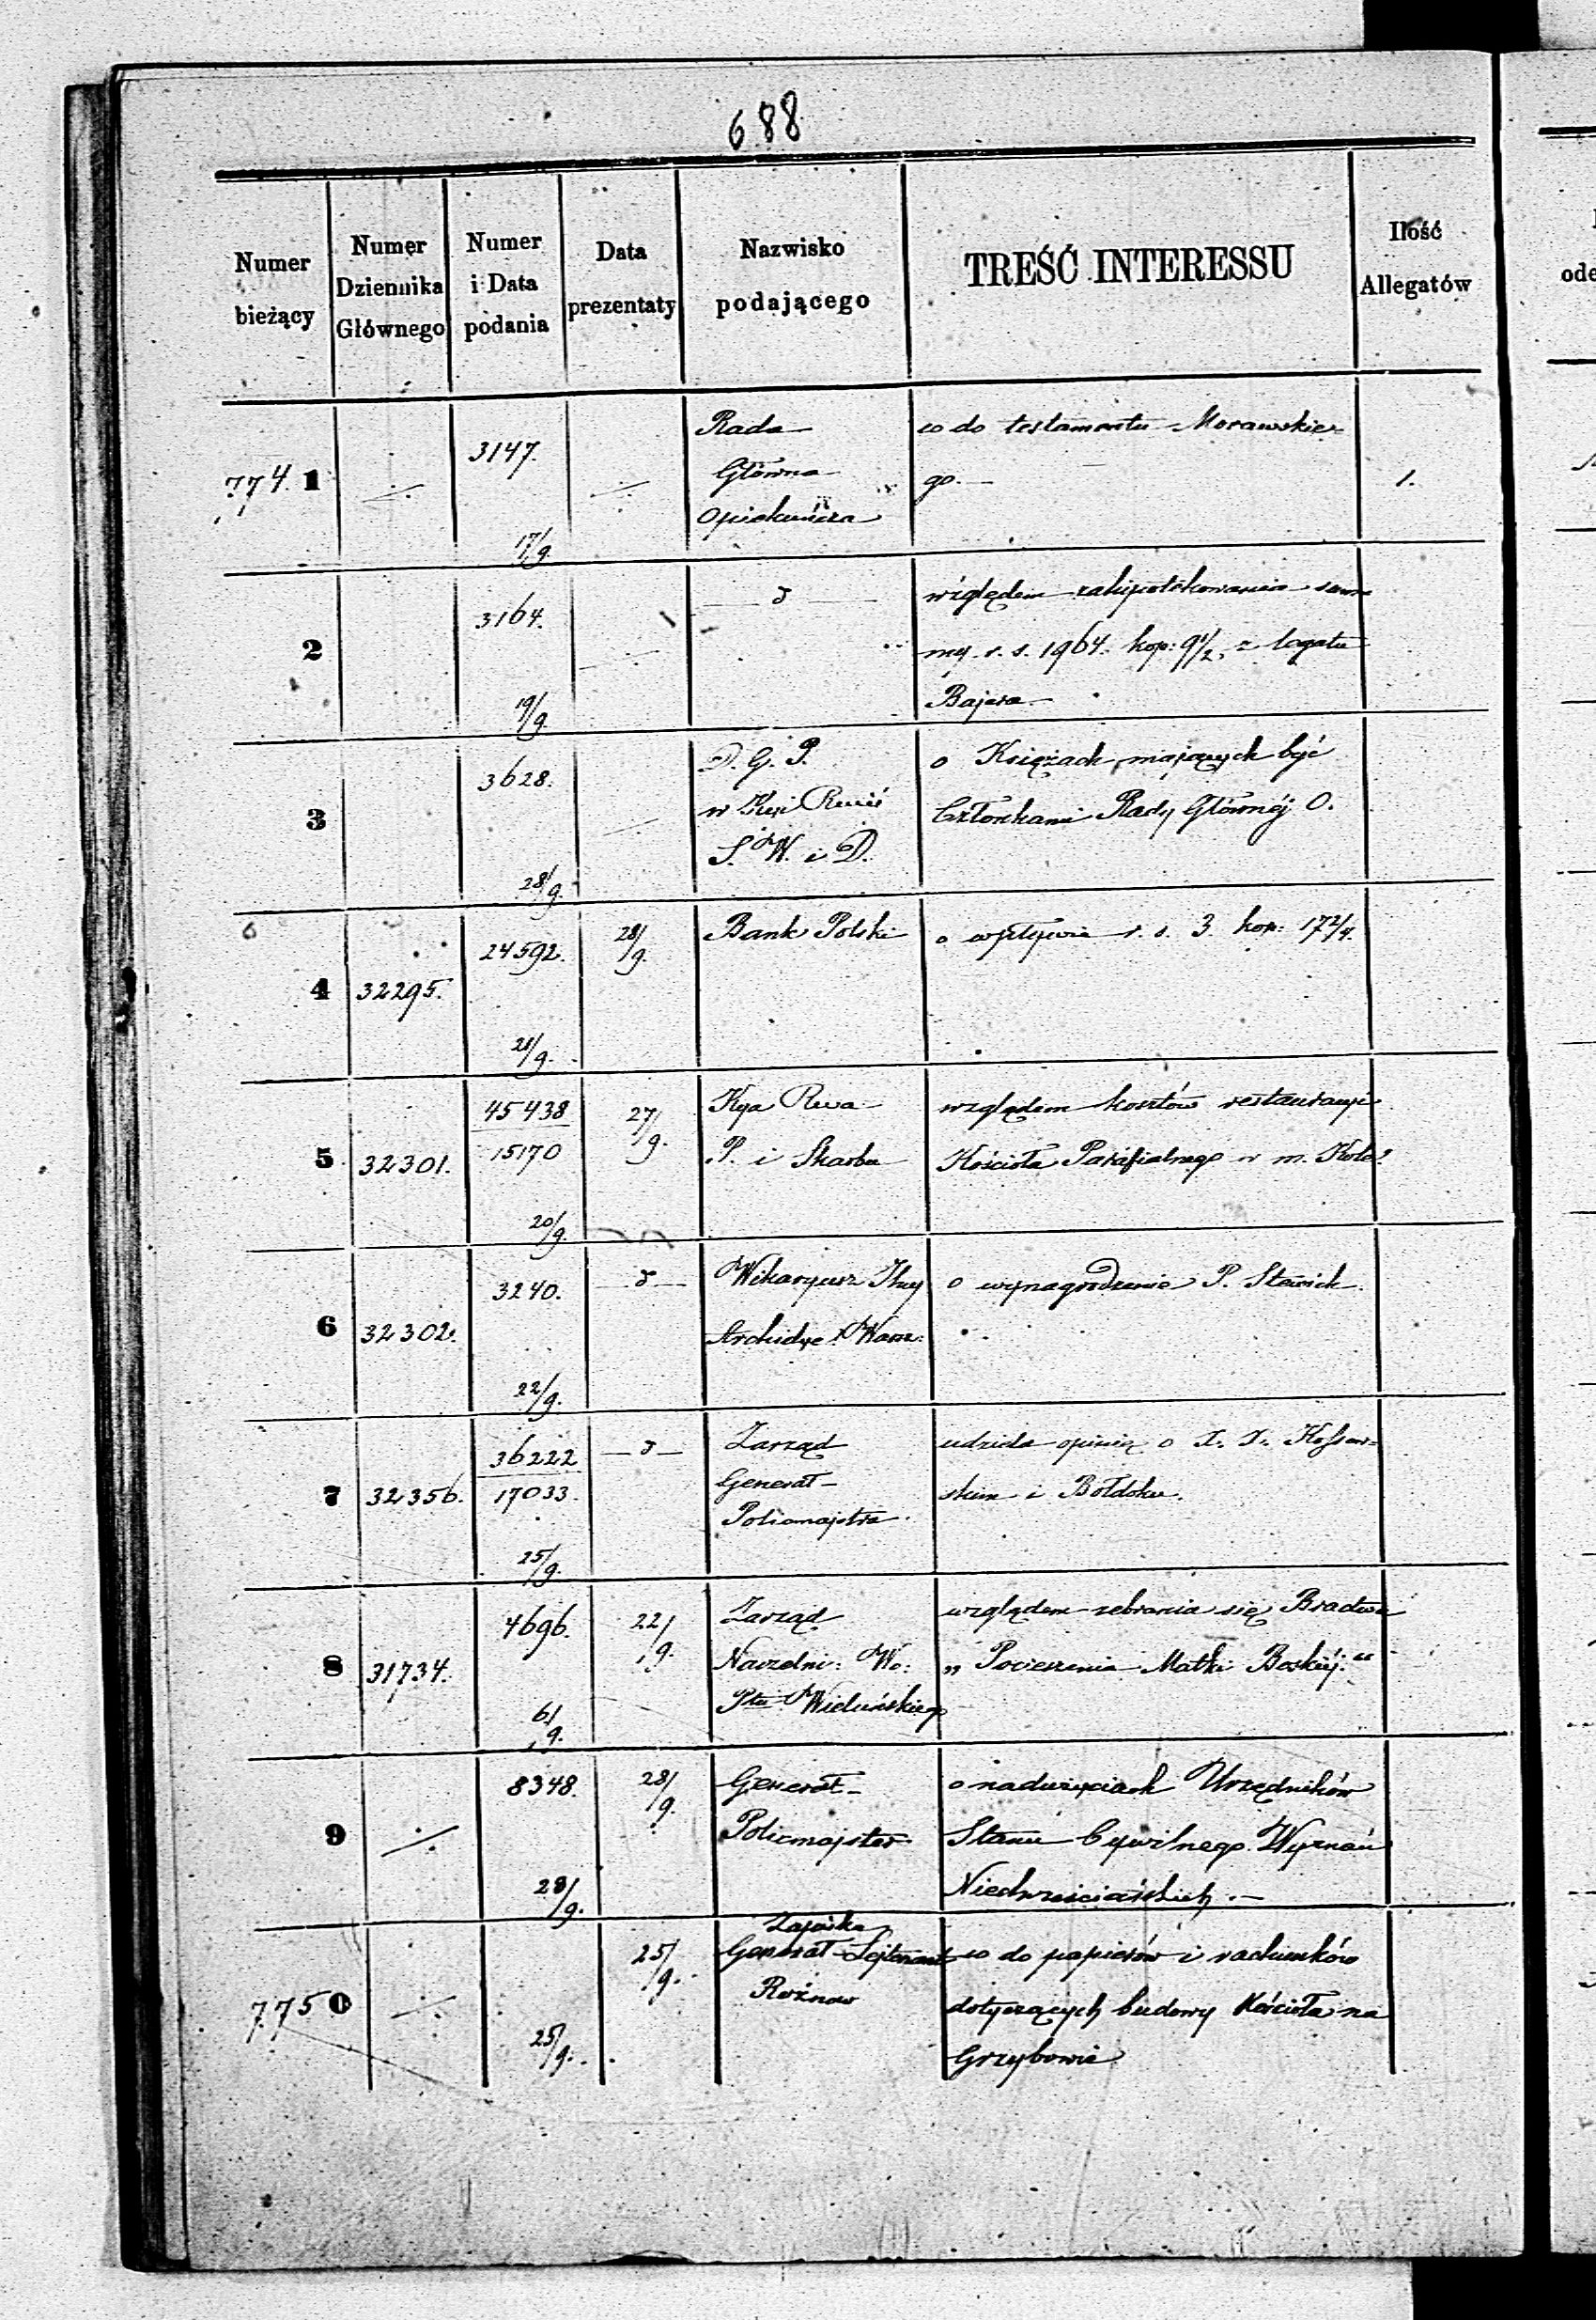 688
Numer bieżący | Numer Dziennika Głównego | Numer i Data podania | Data prezentaty | Nazwisko podającego | TREŚĆ INTERESSU | Ilość Allegatów
774. 1 | ÷ | 3147. 17/9. | ÷ | Rada Główna Opiekuńcza | co do testamentu Morawskie= go.— | 1.
2 | | 3164. 19/9. | | — d — | względem zahipotekowania sum= my r. s. 1964. kop: 9 1/2, z legatu Bajera.—
3 | | 3628. 28/9. | | D. G. P. w S. W. i D. | o Księżach mających być Członkami Rady Głównéj O.
4 | 32295. | 24592. 21/9. | 28/9. | Bank Polski | o wpływie r. s. 3 kop: 17 2/4.
5 | 32301. | 45438 15170 20/9. | 27/9. | P. i Skarbu | względem kosztów restauracyi Kościoła Parafialnego w m. Kole.
6 | 32302. | 3240. 22/9. | — d — | Wikaryusz Archidye: Warsz: | o wynagrodzenie P.
7 | 32356. | 36222 17033. 25/9. | — d — | Zarząd Generał- Policmajstra. | udziela opinią o X. X. Kossow= skim i Bołdoku.
8 | 31734. | 4696. 6/9. | 22/9. | Zarząd Naczelni: Wo: Ptu Wieluńskiego | względem zebrania się Bractwa „Pocieszenia Matki Boskiéj.“
9 | ÷ | 8348. 28/9. | 28/9. | Generał- Policmajster | o nadużyciach Urzędników Stanu Cywilnego Wyznań Niechrześciańskich.—
775 0 | ÷ | 25/9. | 25/9. | Generał-Lejtenant Rożnow | co do papierów i rachunków dotyczących budowy Kościoła na Grzybowie